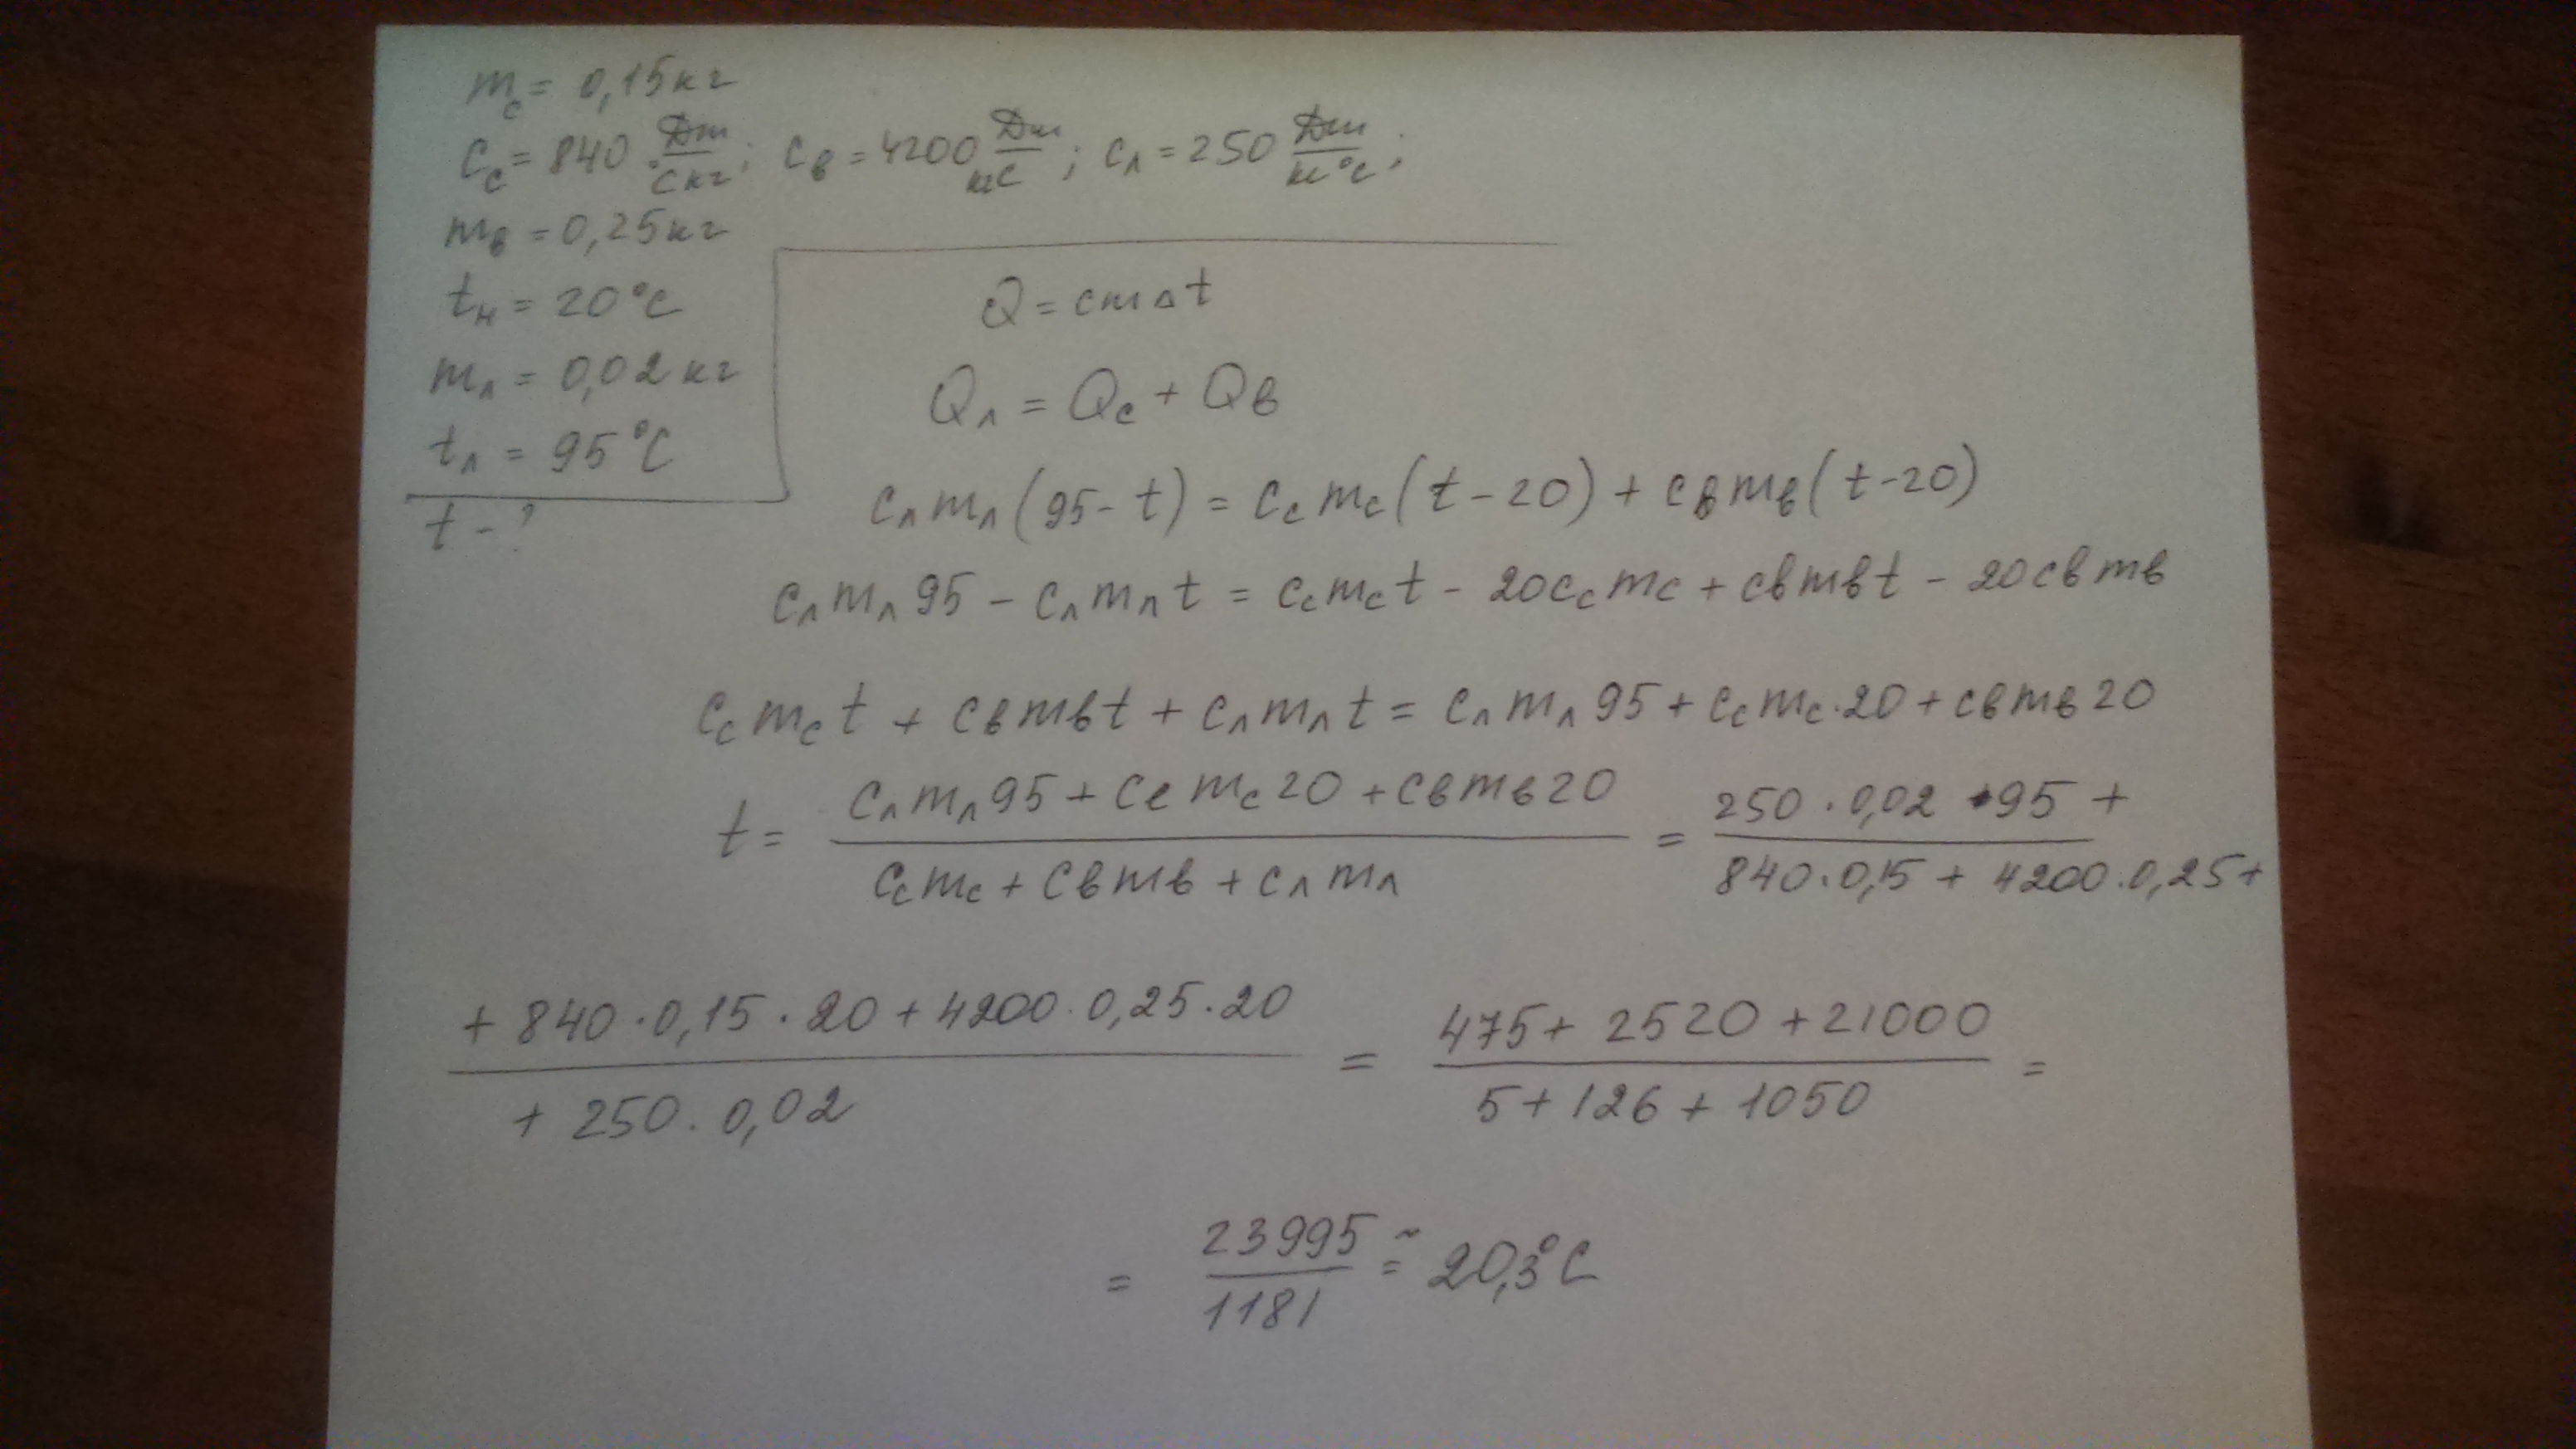 mс = 0,15 кг
Cс = 840 Дж/С кг; Cв = 4200 Дж/кгС; Cл = 250 Дж/кг°С;
mв = 0,25 кг
tн = 20°C
mл = 0,02 кг
tл = 95°C
t - ?
Q = cmΔt
Qл = Qс + Qв
Cл mл (95 - t) = Cс mс (t - 20) + Cв mв (t - 20)
Cл mл 95 - Cл mл t = Cс mс t - 20 Cс mс + Cв mв t - 20 Cв mв
Cс mс t + Cв mв t + Cл mл t = Cл mл 95 + Cс mс · 20 + Cв mв 20
t = (Cл mл 95 + Cс mс 20 + Cв mв 20) / (Cс mс + Cв mв + Cл mл) = (250 · 0,02 · 95 +) / (840 · 0,15 + 4200 · 0,25 +)
(+ 840 · 0,15 · 20 + 4200 · 0,25 · 20) / (+ 250 · 0,02) = (475 + 2520 + 21000) / (5 + 126 + 1050) =
= 23995 / 1181 ≈ 20,3°C